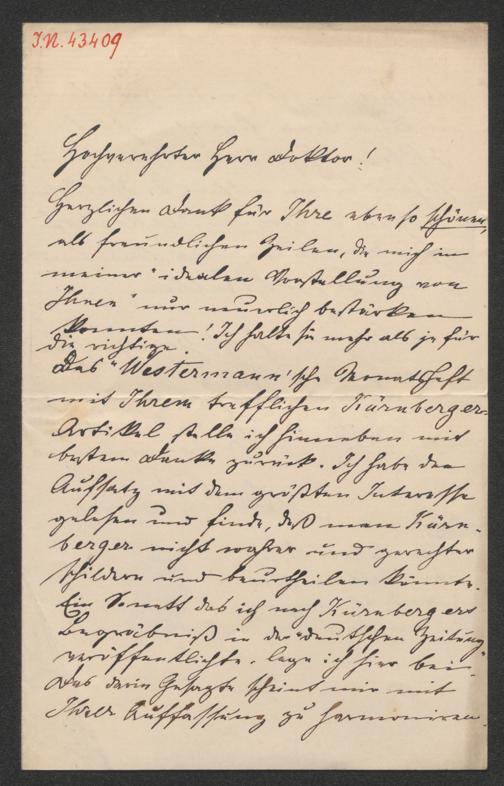 I.N. 43409
Hochverehrter Herr Doktor!
Herzlichen Dank für Ihre ebenso schönen,
als freundlichen Zeilen, die mich in
meiner "idealen Vorstellung von
Ihnen" nur neuerlich bestärken
konnten! Ich halte sie mehr als je für
die richtige.
Das "Westermann'sche Monatsheft
mit Ihrem trefflichen Kürnberger-
Artikel stelle ich hieneben mit
bestem Danke zurück. Ich habe den
Aufsatz mit dem größten Interesse
gelesen und finde, daß man Kürn-
berger nicht wahrer und gerechter
schildern und beurtheilen könnte.
Ein Sonett das ich nach Kürnbergers
Begräbniß in der "deutschen Zeitung"
veröffentlichte, lege ich hier bei.
Das darin Gesagte scheint mir mit
Ihrer Auffassung zu harmoniren.